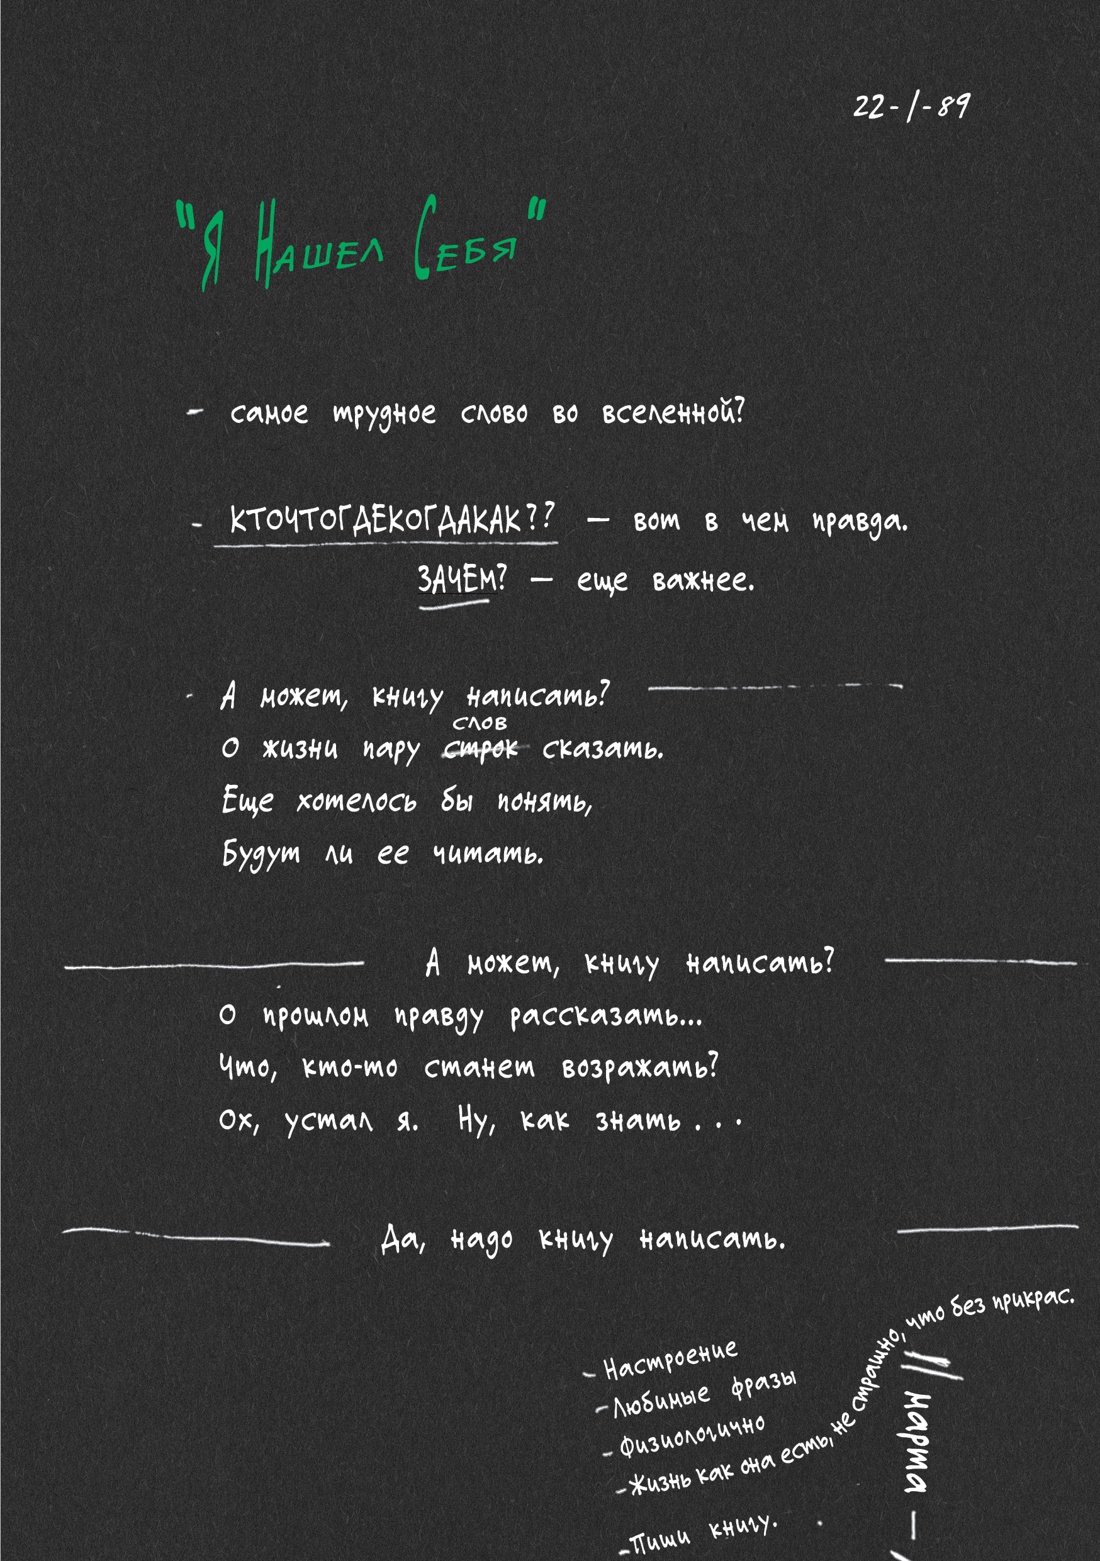 22-1-89
"Я Нашел Себя"
- самое трудное слово во вселенной?
- КТОЧТОГДЕКОГДАКАК?? — вот в чем правда.
ЗАЧЕМ? — еще важнее.
- А может, книгу написать?
слов
О жизни пару строк сказать.
Еще хотелось бы понять,
Будут ли ее читать.
А может, книгу написать?
О прошлом правду рассказать...
Что, кто-то станет возражать?
Ох, устал я. Ну, как знать . . .
Да, надо книгу написать.
- Настроение
- Любимые фразы
- Физиологично
- Жизнь как она есть, не страшно, что без прикрас.
- Пиши книгу.
марта —